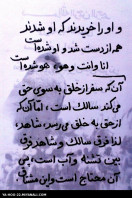 و او را خریدند که او شدند
هم از دست شد و او شده است
انا وانت وهو، هو شده است
آن که سفر از خلق به سوی حق
می‌کند سالک است، اما آن که
از حق به خلق می‌رسد، شاهد؛
لذا فرق سالک و شاهد فرق
بین تشنه و آب است، یعنی
آن محتاج است و این مشتاق